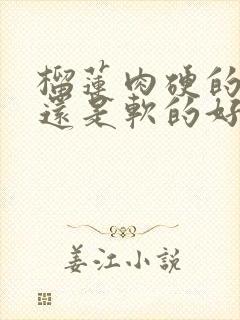 榴蓮肉硬的
還是軟的好
姜江小説